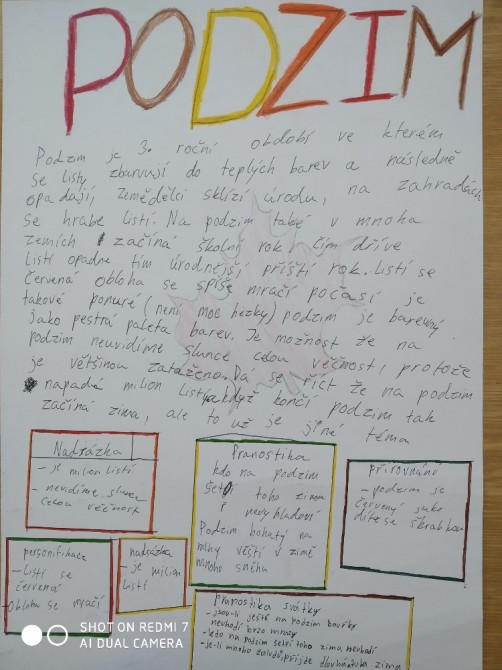 PODZIM
Podzim je 3. roční období ve kterém
se listy zbarvují do teplých barev a následně
opadají, zemědělci sklízí úrodu, na zahradách
se hrabe listí. Na podzim také v mnoha
zemích začíná školní rok. Čím dříve
listí opadne tím úrodnější příští rok. Listí se
červená obloha se spíše mračí počasí je
takové ponuré (není moc hezky) podzim je barevný
jako pestrá paleta barev. Je možnost že na
podzim neuvidíme slunce celou věčnost, protože
je většinou zataženo. Dá se říct že na podzim
napadá milion listů, a když končí podzim tak
začíná zima, ale to už je jiné téma
Nadsázka
- je milion listí
- nevidíme slunce
celou věčnost
Pranostika
kdo na podzim
šetří toho zima
nevyhladoví
Podzim bohatý na
mlhy věští v zimě
mnoho sněhu
přirovnání
- podzim je
červený jako
dítě se
personifikace
- Listí se
červená
- Obloha se mračí
nadsázka
- je milion
listí
Pranostika svátky
- jsou-li ještě na podzim bouřky
nevhodí brzo mrazy
- kdo na podzim šetří toho zima
- je-li mnoho žaludů, přijde dlouhá zima
SHOT ON REDMI 7
AI DUAL CAMERA